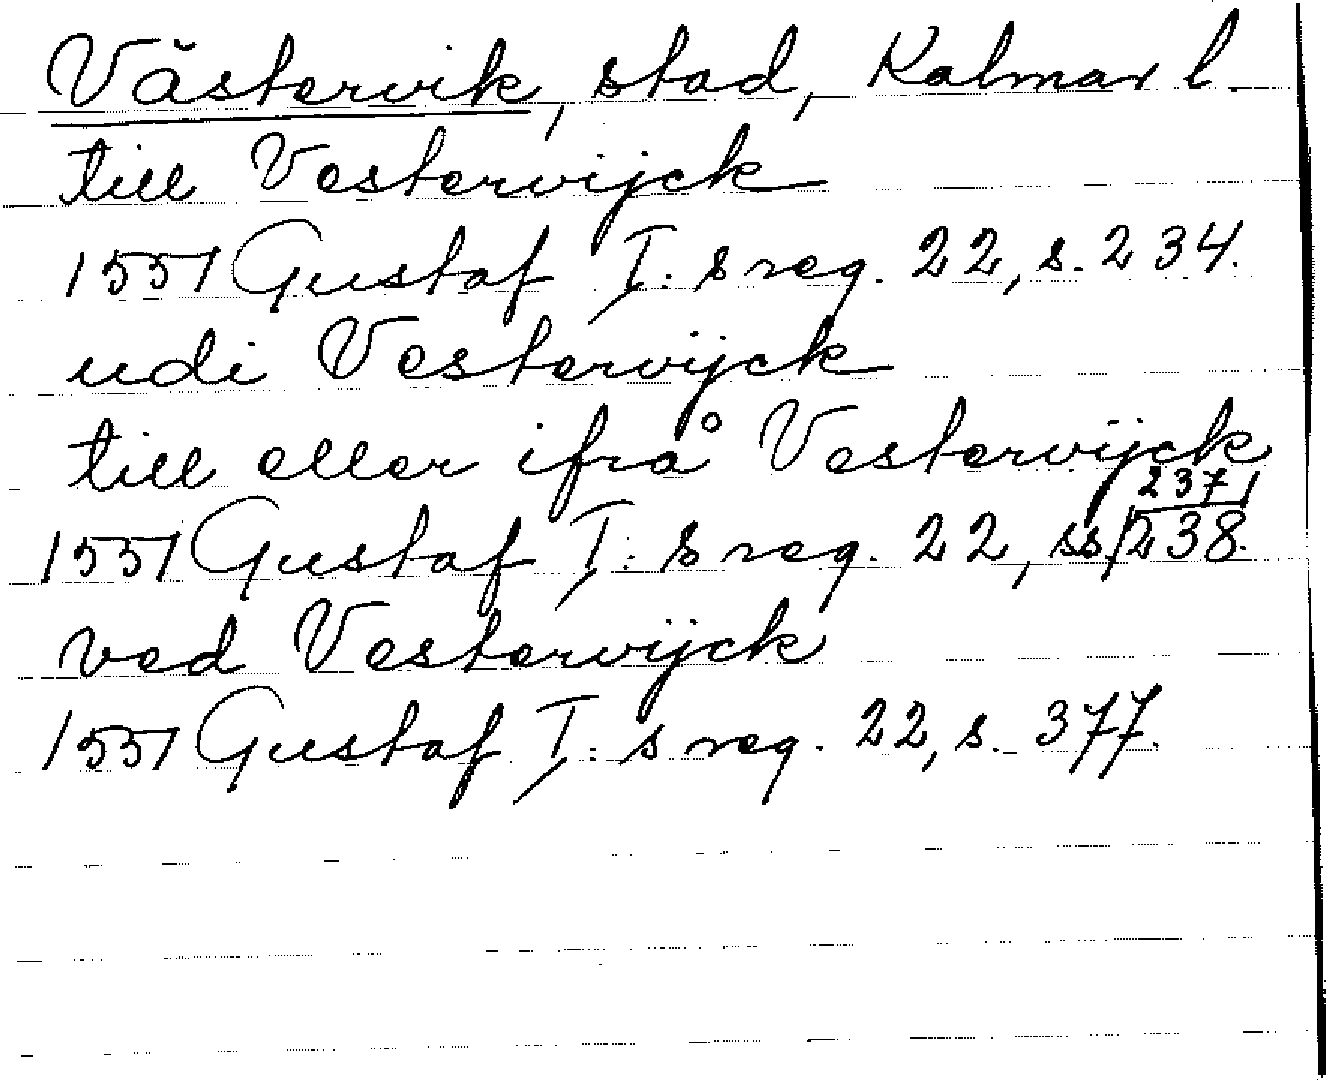 Västervik, stad, Kalmar l
till Vesterwijck
1551 Gustaf I: s reg. 22, s. 234.
udi Vesterwijck
till eller ifrå Vesterwijck
1551 Gustaf I: s reg. 22, ss. 237, 238.
ved Vesterwijck
1551 Gustaf I: s reg. 22, s. 377.